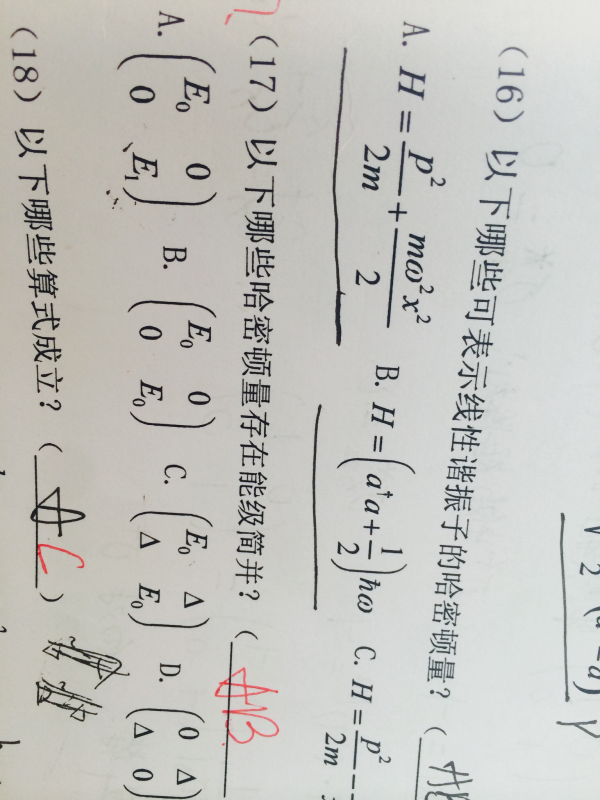 (16) 以下哪些可表示线性谐振子的哈密顿量? (
A. H = p²/2m + mω²x²/2 B. H = (a†a + 1/2)ħω C. H = p²/2m −
(17) 以下哪些哈密顿量存在能级简并? ( B
A. (E₀ 0; 0 E₁) B. (E₀ 0; 0 E₀) C. (E₀ Δ; Δ E₀) D. (0 Δ; Δ 0)
(18) 以下哪些算式成立? ( C )